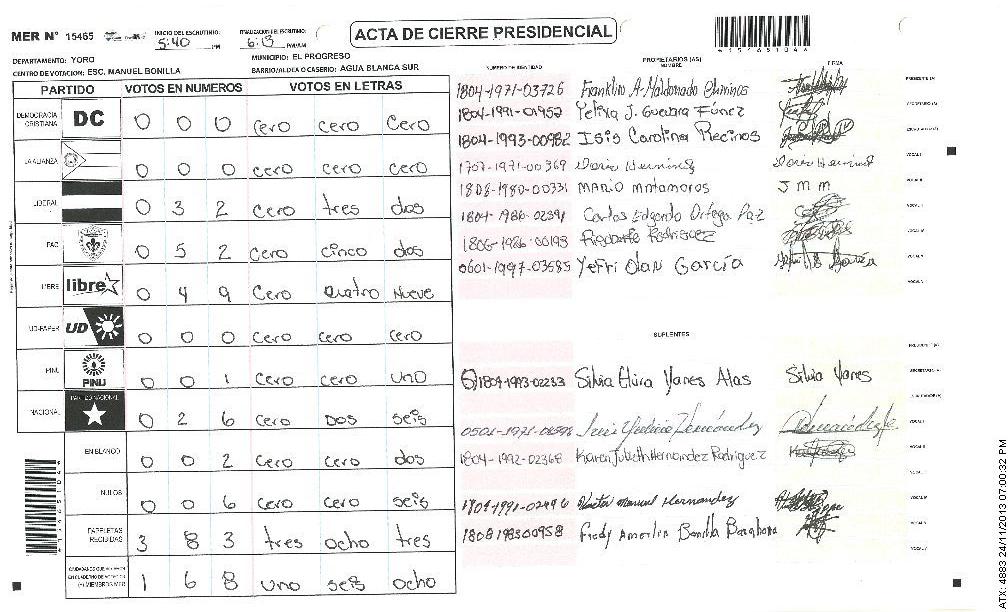 MER N° 15465 INICIO DEL ESCRUTINIO: 5:40 PM FINALIZACION DEL ESCRUTINIO: 6:13 PM/AM
ACTA DE CIERRE PRESIDENCIAL
DEPARTAMENTO: YORO MUNICIPIO: EL PROGRESO
CENTRO DE VOTACION: ESC. MANUEL BONILLA BARRIO/ALDEA O CASERIO: AGUA BLANCA SUR
PARTIDO VOTOS EN NUMEROS VOTOS EN LETRAS
DEMOCRACIA CRISTIANA DC 0 0 0 cero cero cero
LA ALIANZA 0 0 0 cero cero cero
LIBERAL 0 3 2 cero tres dos
PAC 0 5 2 cero cinco dos
LIBRE libre 0 4 9 cero cuatro nueve
UD-FAPER UD 0 0 0 cero cero cero
PINU PINU 0 0 1 cero cero uno
NACIONAL PARTIDO NACIONAL 0 2 6 cero dos seis
EN BLANCO 0 0 2 cero cero dos
NULOS 0 0 6 cero cero seis
PAPELETAS RECIBIDAS 3 8 3 tres ocho tres
1 6 8 uno seis ocho
NUMERO DE IDENTIDAD PROPIETARIOS (AS) NOMBRE FIRMA
1804-1971-03726 Franklin A. Maldonado
1804-1991-01952 Yelina J. Guevara Fúnez
1804-1993-00982 Isis Carolina Recinos
1707-1971-00369
1808-1980-00331 MARIO MATAMOROS J M M
1804-1986-02391 Carlos Edgardo Ortega Paz
1806-1986-00193 Rodriguez
0601-1997-03585 Yefri Olan García
SUPLENTES
1804-1993-02233 Silvia Elvira Yanes Alas Silvia Yanes
Hernández
1804-1992-02368 Karen Julieth Hernandez Rodriguez
Manuel Hernandez
1808198300958 Fredy Bonilla
ATX: 4883 24/11/2013 07:00:32 PM